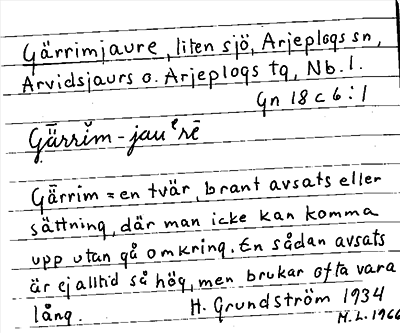 Gärrimjaure, liten sjö, Arjeplogs sn,
Arvidsjaurs o. Arjeplogs tg, Nb. l.
Gn 18 c 6 : 1
Gǟrrĭm - jauᵉrē
Gǟrrim = en tvär, brant avsats eller
sättning, där man icke kan komma
upp utan gå omkring. En sådan avsats
är ej alltid så hög, men brukar ofta vara
lång. H. Grundström 1934
M. L. 1966